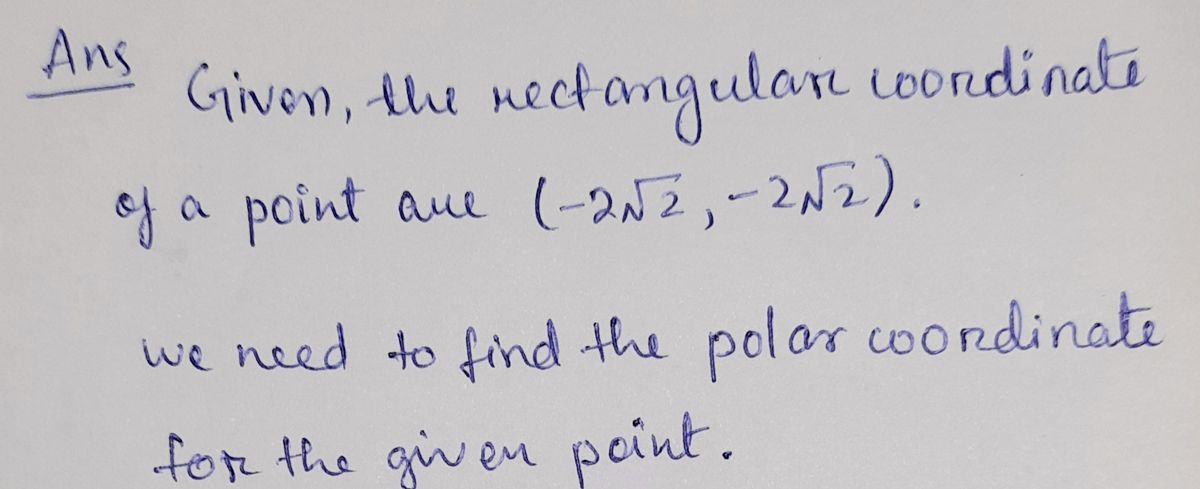 Ans
Given, the rectangular coordinate
of a point are (-2√2, -2√2).
we need to find the polar coordinate
for the given point.